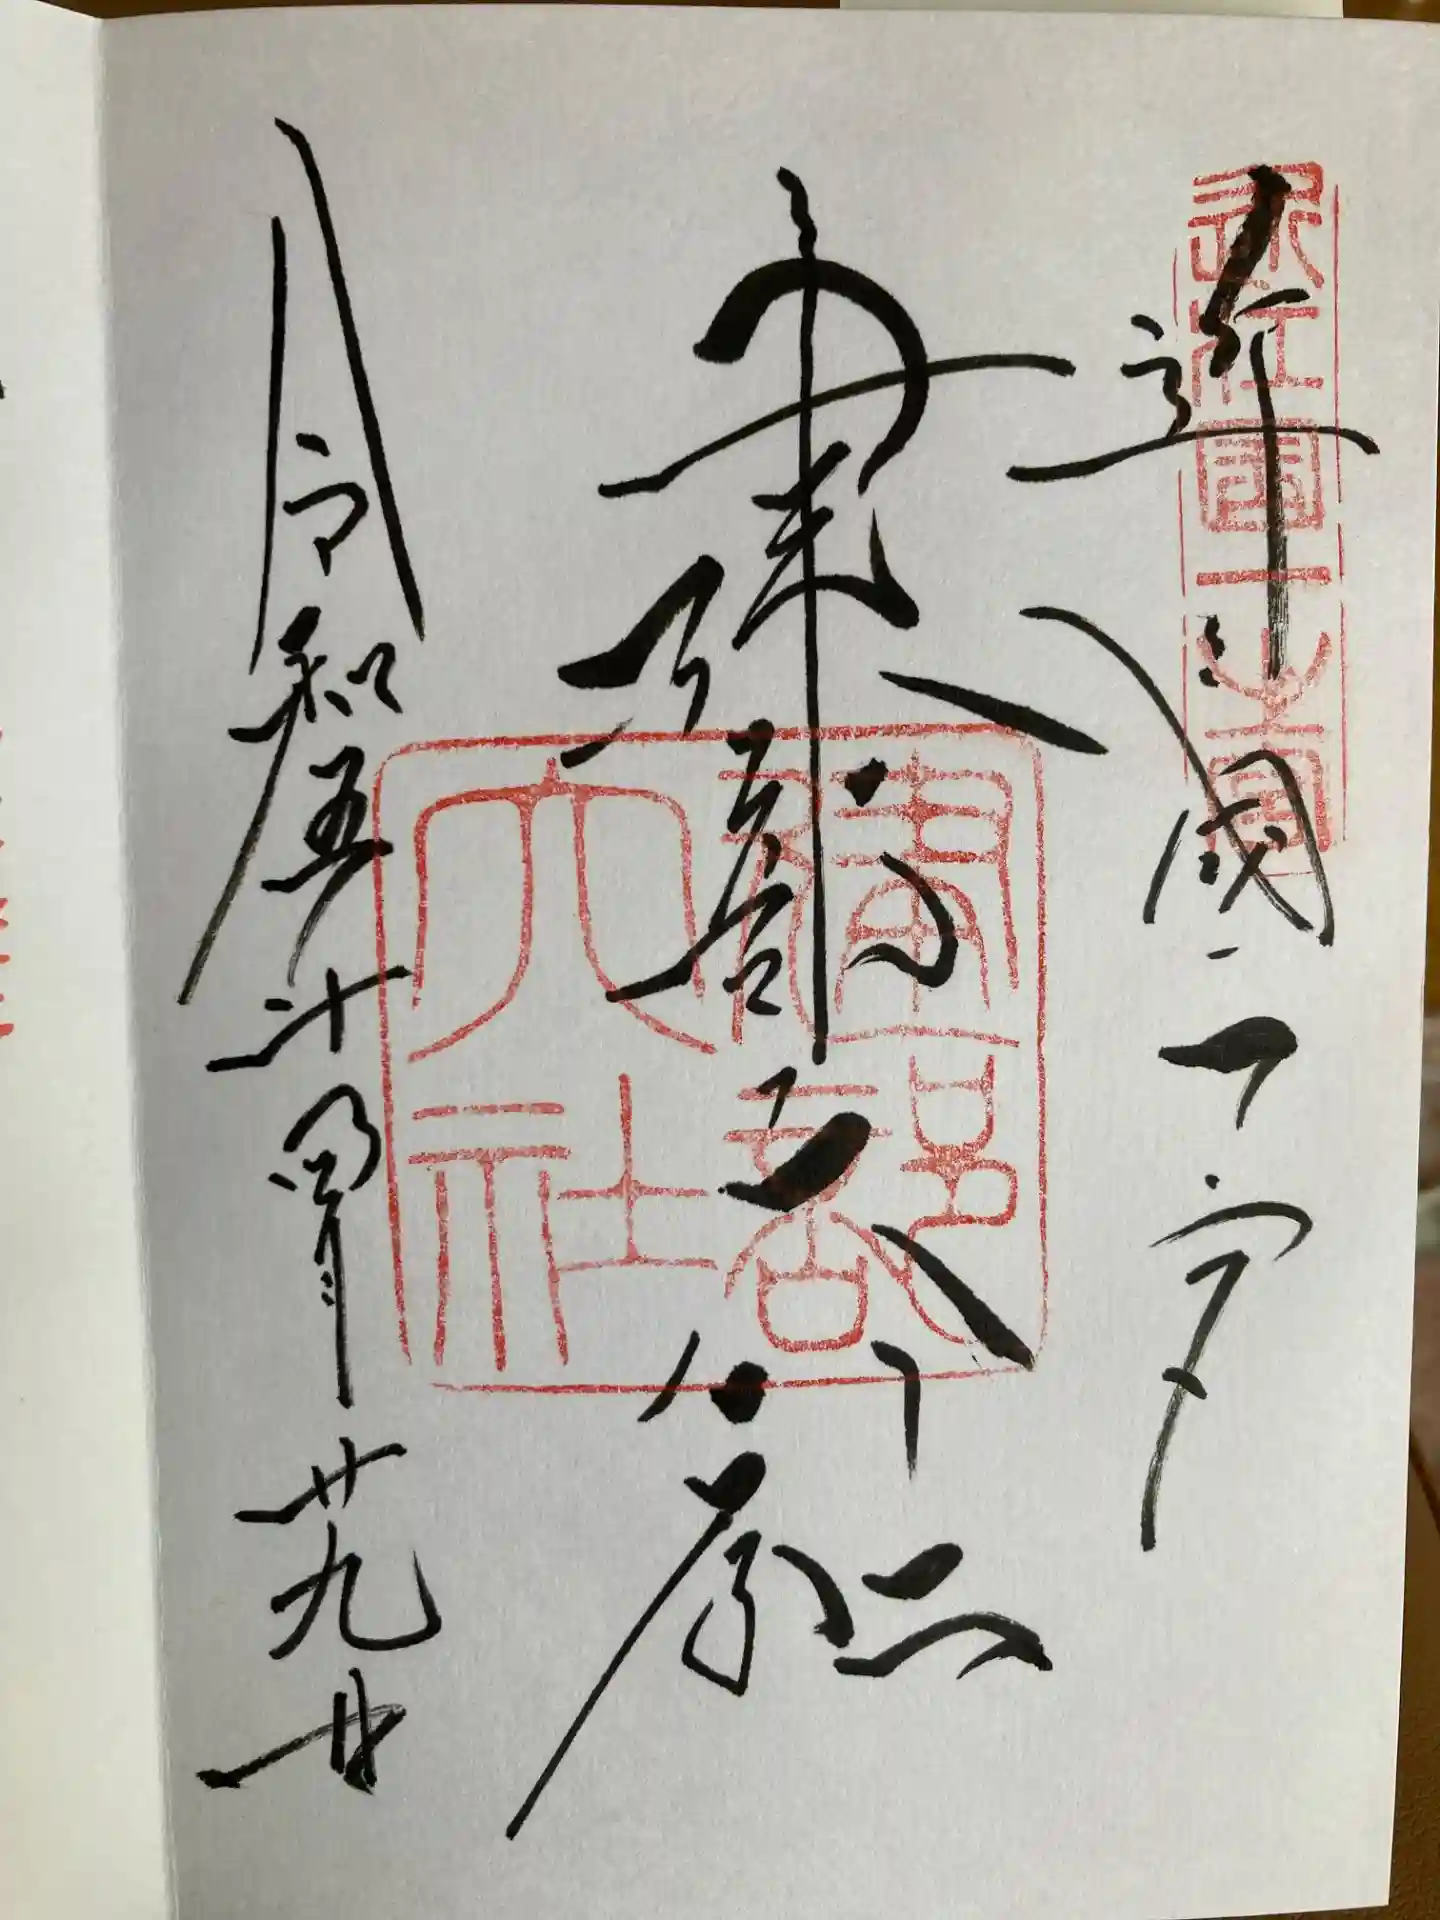 近江國一之宮
近江國一宮
建部大社
建部大社
令和五年
廿九日